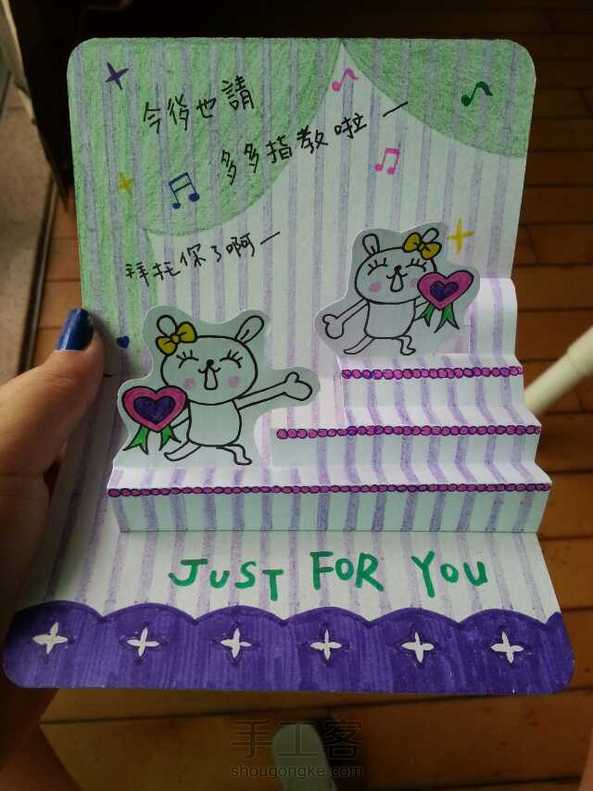 今後也請
多多指教啦一
拜托你了啊一
JUST FOR YOU
手工客
shougongke.com